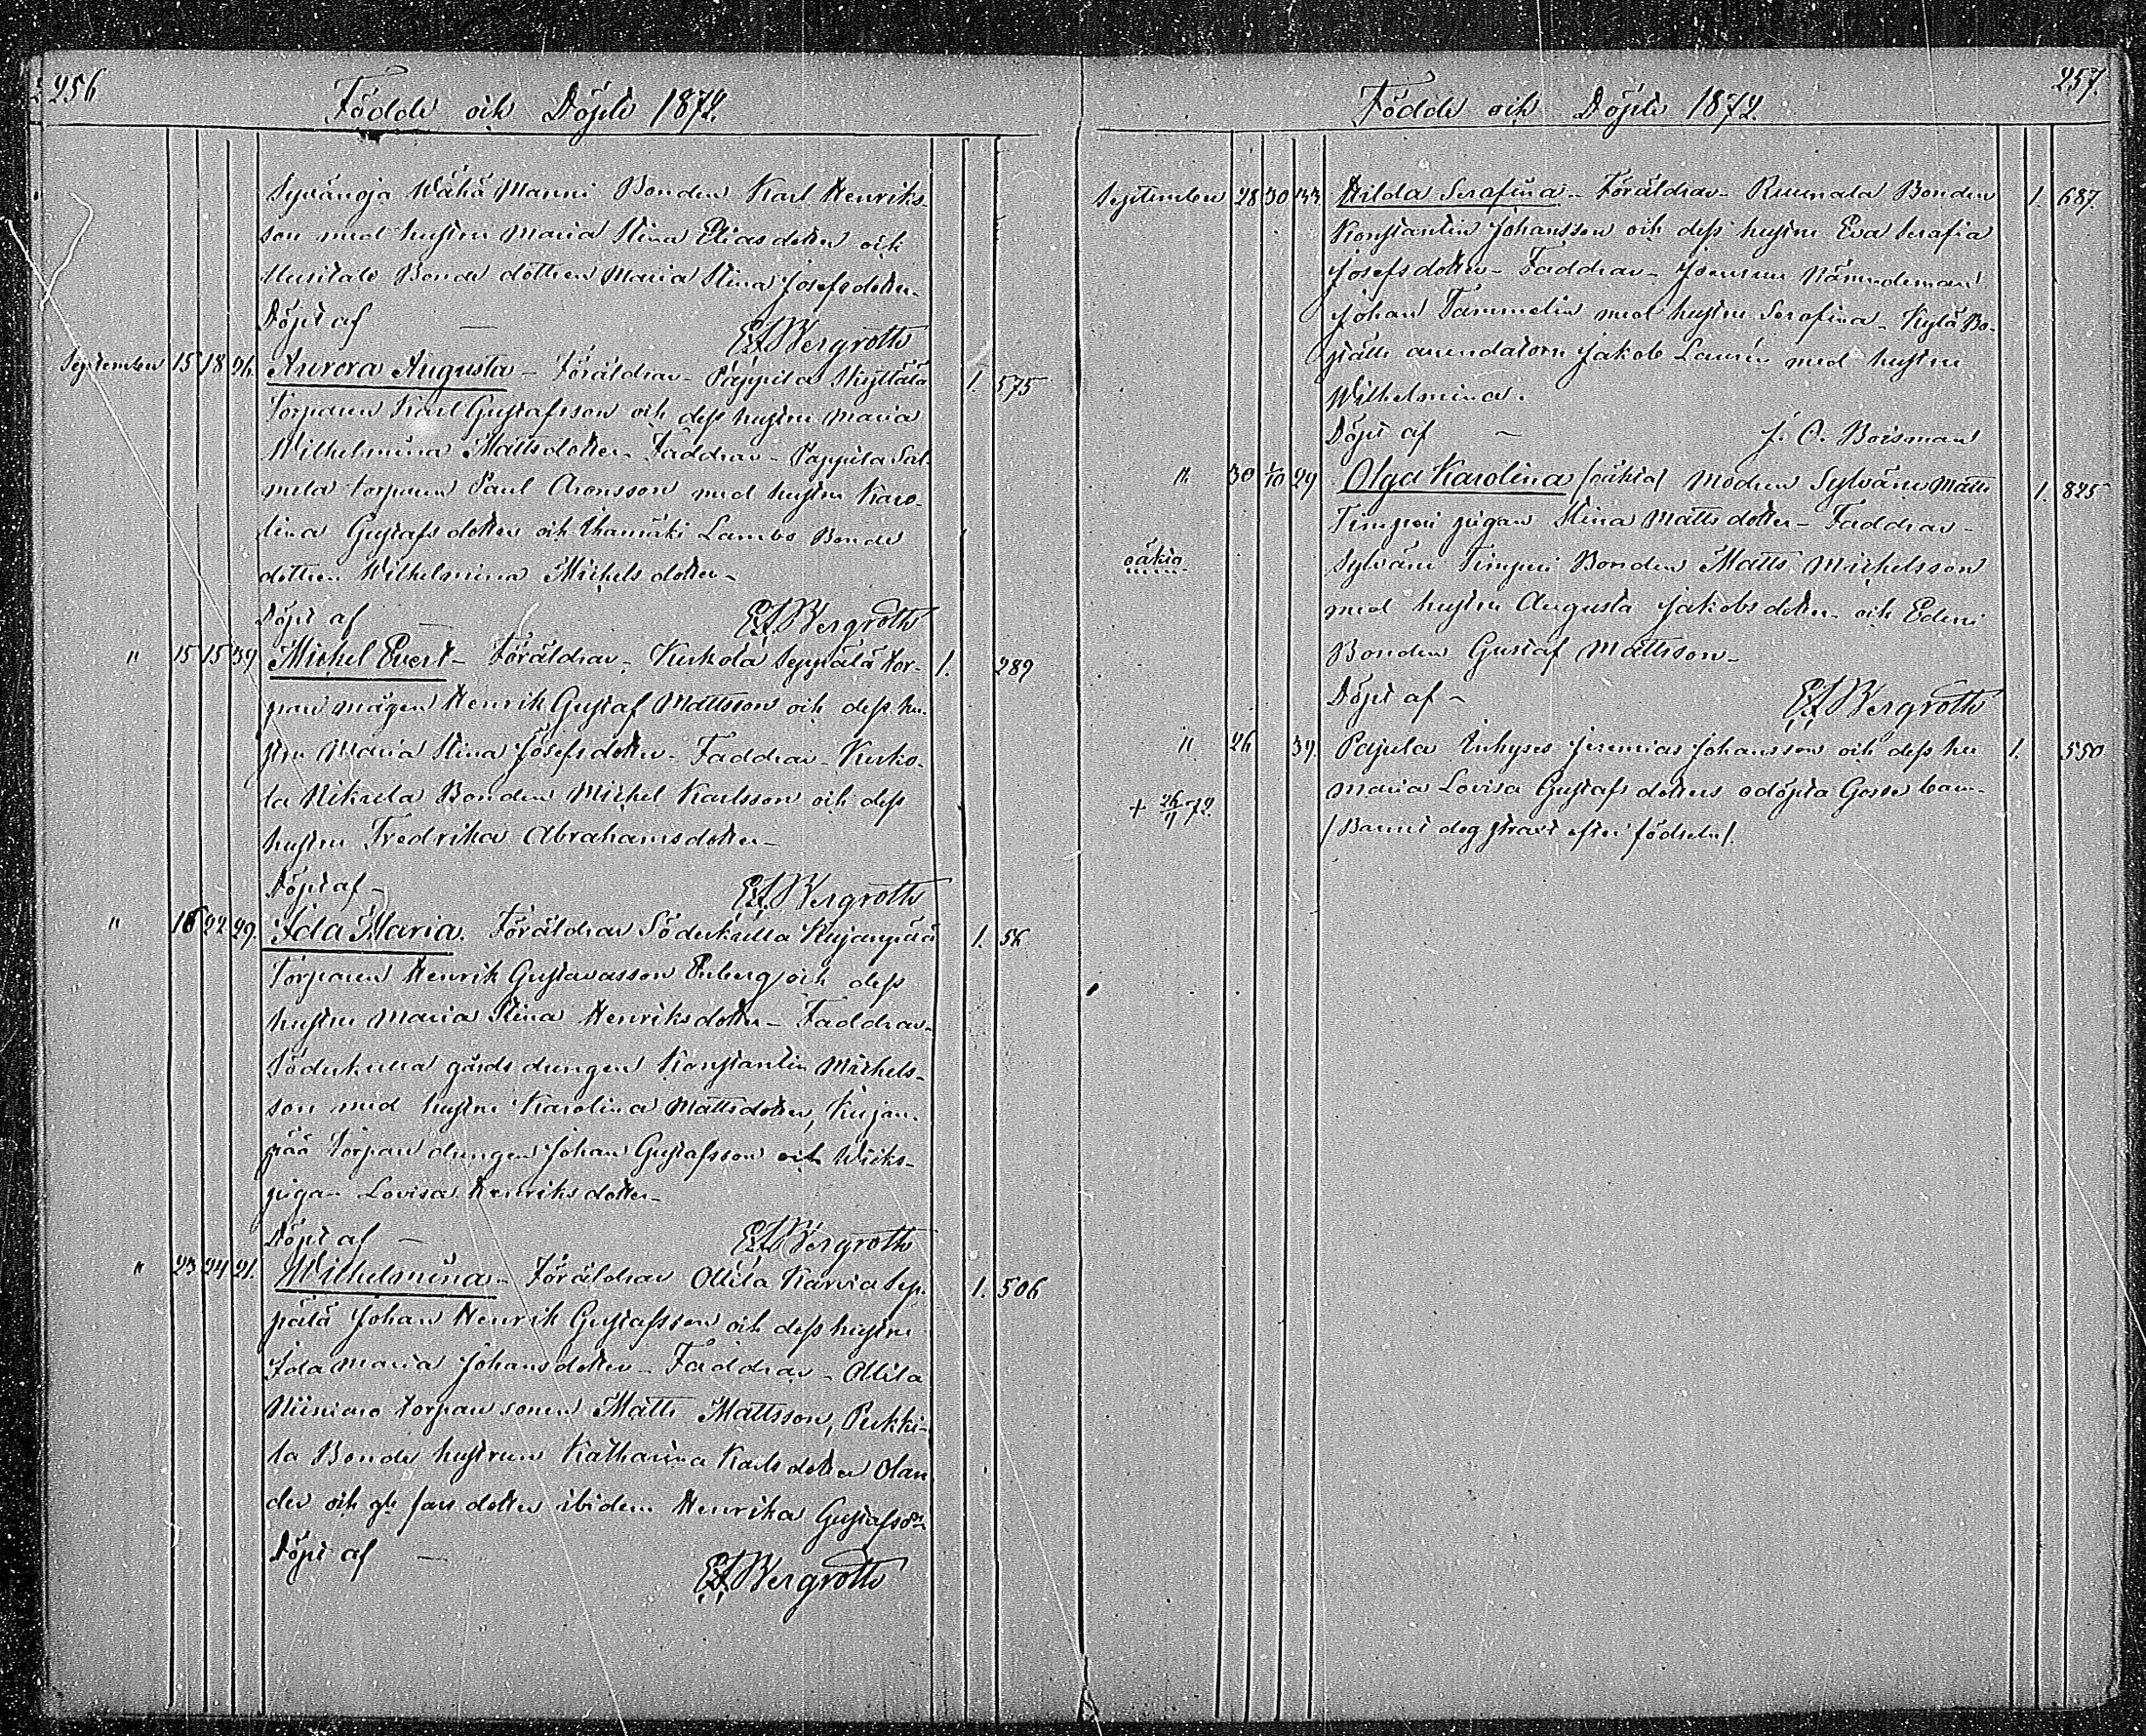 256.
Födde och Döpte 1872.
Syvänoja Wähä Manni Bonden Karl Henriks-
son med hustru Maria Stina Eliasdotter och
Bonde dottren Maria Stina Josefsdotter.
Döpt af — E A Bergroth
September 15 18 26. Aurora Augusta – Föräldrar – Pappila Skyttälä 1. 575
Torparen Karl Gustafsson och dess hustru Maria
Wilhelmina Mattsdotter – Faddrar – Pappila Sal-
mela torparen Paul Aronsson med hustru Karo-
lina Gustafsdotter och Uhamäki Lambo Bonde
dottren Wilhelmina Michelsdotter –
Döpt af — E A Bergroth
" 15 15 39 Michel Evert – Föräldrar – Kuskola Seppälä tor- 1. 289
pare mågen Henrik Gustaf Mattsson och dess hu-
stru Maria Stina Josefsdotter – Faddrar – Kusko-
la Nikula Bonden Michel Karlsson och dess
hustru Fredrika Abrahamsdotter –
Döpt af – E A Bergroth
" 16 22 29. Ida Maria. Föräldrar Söderkulla Kujanpää 1. 56
Torparen Henrik Gustavasson Enberg och dess
hustru Maria Stina Henriksdotter – Faddrar –
Söderkulla gårds drengen Konstantin Michels-
son med hustru Karolina Mattsdotter, Kujan-
pää torpare drengen Johan Gustafsson och Wiiks-
pigan Lovisa Henriksdotter –
Döpt af — E A Bergroth
" 23 24 21. Wilhelmina – Föräldrar Ollila Karvia Sep- 1. 506
pälä Johan Henrik Gustafsson och dess hustru
Ida Maria Johansdotter – Faddrar – Ollila
Niinimo torpare sonen Matts Mattsson, Pukki-
la Bonde hustrun Katharina Karlsdotter Olan
der och dotter ibidem Henrika Gustafsdr
Döpt af — E A Bergroth
257.
Födde och Döpte 1872.
September 28 30 33. Hilda Serafina – Föräldrar – Ruunala Bonden 1. 687.
Konstantin Johansson och dess hustru Eva Serafia
Josefsdotter – Faddrar – Nämndeman
Johan Tammelin med hustru Serafina – Kylä Bo-
ställe arrendatorn Jakob Laurén med hustru
Wilhelmina.
Döpt af – J. O. Boisman
" 30 1/10 29 Olga Karolina (oäkta) Modren Sylvänä Matts 1. 825
Timperi pigan Stina Mattsdotter – Faddrar –
oäkta Sylväne Timperi Bonden Matts Michelsson
med hustru Augusta Jakobsdotter och Edeni
Bonden Gustaf Mattsson –
Döpt af – E A Bergroth
" 26 39. Pajula Inhyses Jeremias Johansson och dess hu 1. 550
Maria Lovisa Gustafsdotters odöpta Gosse barn –
+ 26/9 72. (Barnet dog straxt efter födseln).